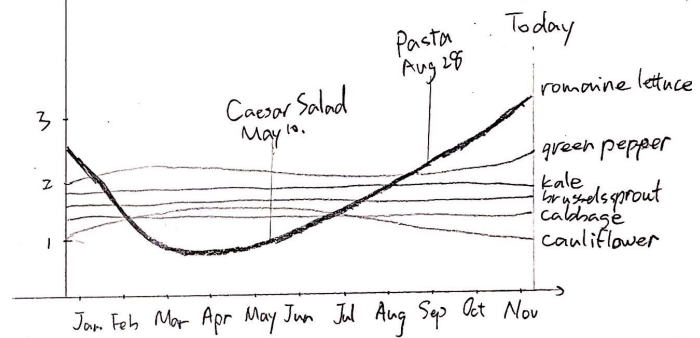 Today
Pasta
Aug 28
Caesar Salad
May 10.
romaine lettuce
green pepper
kale
brusselsprout
cabbage
cauliflower
3
2
1
Jan Feb Mar Apr May Jun Jul Aug Sep Oct Nov